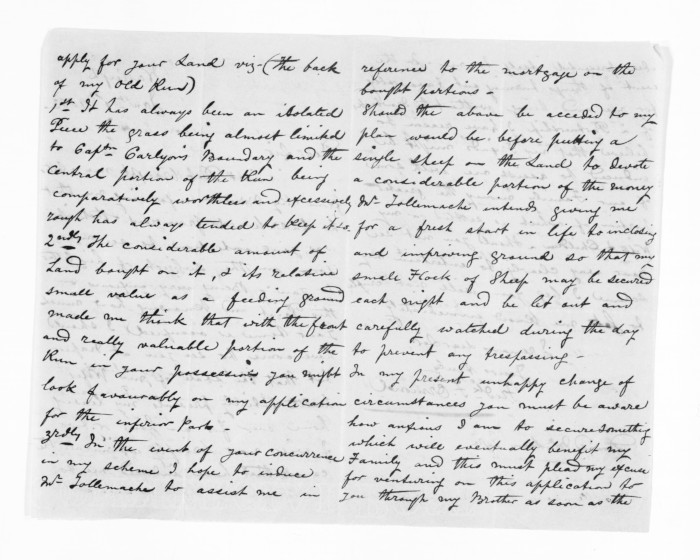 apply for your Land viz - (the back
of my Old Run)
1st It has always been an isolated
Piece the grass being almost limited
to Captn Carlyon's Boundary and the
central portion of the Run being
comparatively worthless and excessively
rough has always tended to keep it so.
2ndly The considerable amount of
Land bought on it, & its relative
small value as a feeding ground
made me think that with the front
and really valuable portion of the
Run in your possession you might
look favourably on my application
for the inferior Part -
3rdly In the event of your Concurrence
in my scheme I hope to induce
Mr Tollemache to assist me in
reference to the mortgage on the
bought portions -
Should the above be acceded to my
plan would be before putting a
single sheep on the Land to devote
a considerable portion of the money
Mr Tollemache intends giving me
for a fresh start in life to inclosing
and improving ground so that my
small Flock of Sheep may be secured
each night and be let out and
carefully watched during the day
to prevent any trespassing -
In my present unhappy change of
circumstances you must be aware
how anxious I am to secure something
which will eventually benefit my
Family and this must plead my excuse
for venturing on this application to
you through my Brother as soon as the